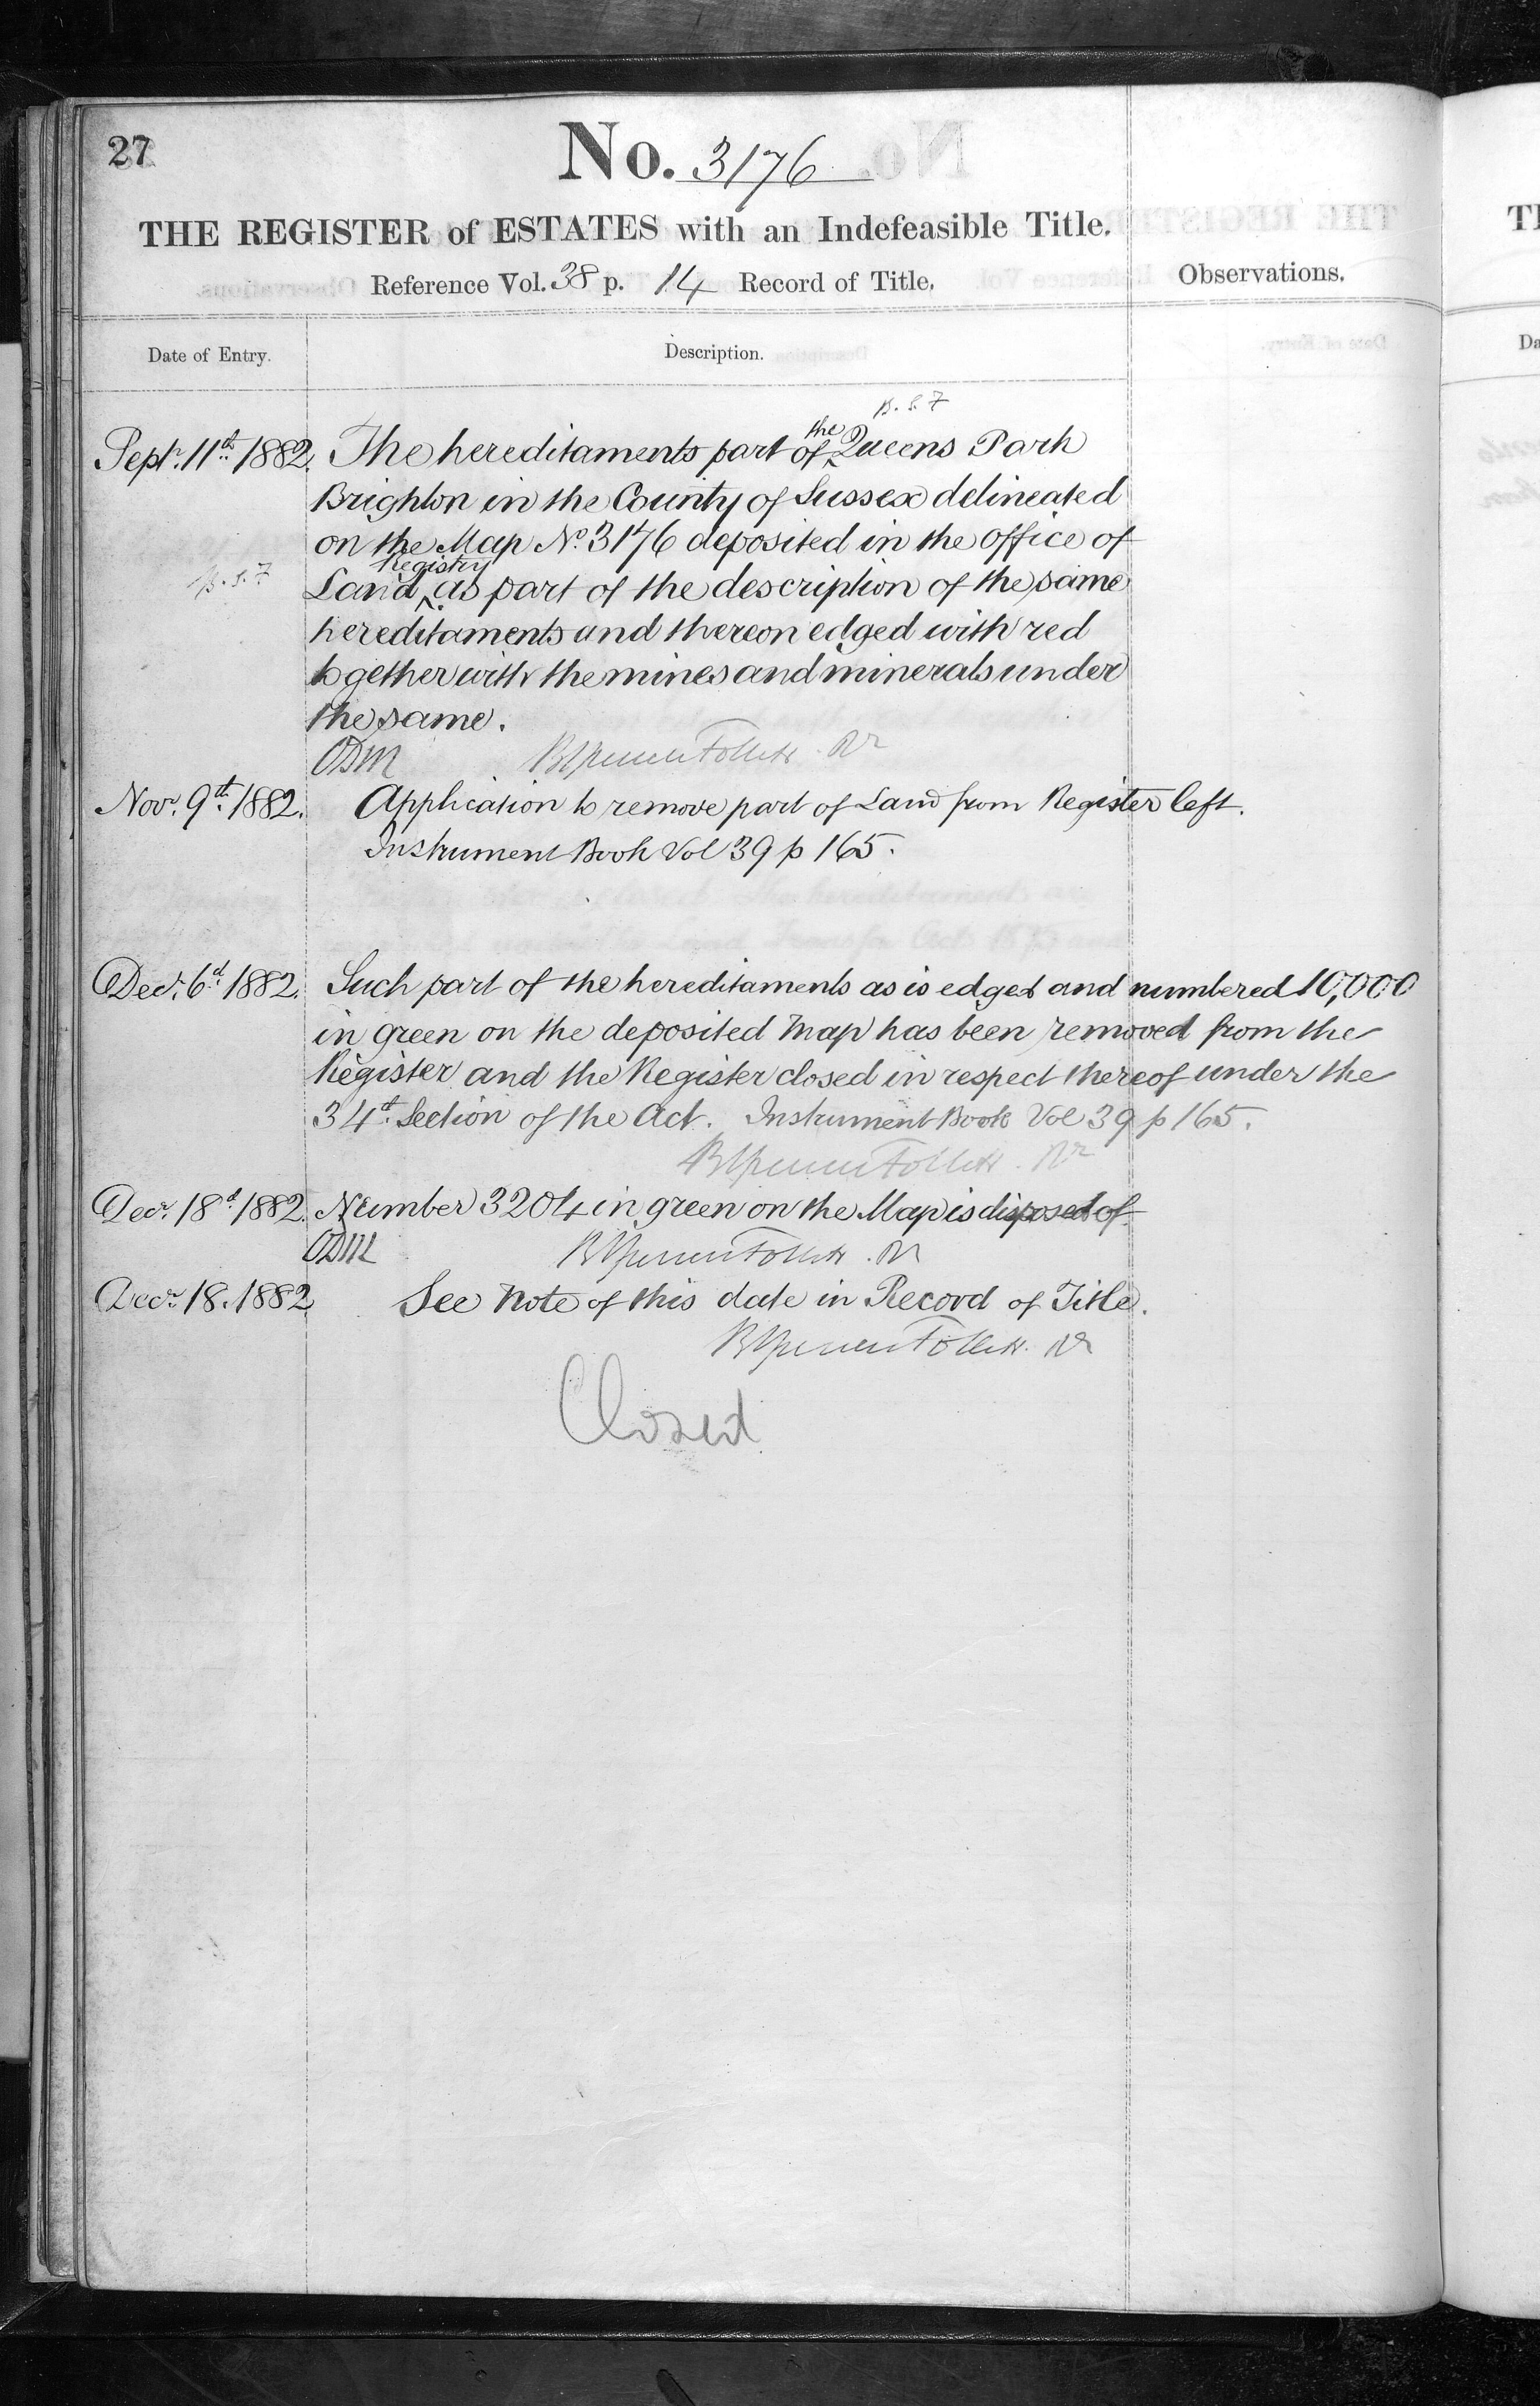 27
No. 3176
THE REGISTER of ESTATES with an Indefeasible Title.
Reference Vol. 38 p. 14 Record of Title.
Observations.
Date of Entry.
Description.
B.S.F
Sept. 11th 1882. The hereditaments part of the Queens Park
Brighton in the County of Sussex delineated
on the Map No. 3176 deposited in the office of
B.S.F Land Registry as part of the description of the same
hereditaments and thereon edged with red
together with the mines and minerals under
the same.
ODM Follett Rr
Novr. 9th 1882. Application to remove part of Land from Register left.
Instrument Book Vol 39 p 165.
Decr. 6th 1882. Such part of the hereditaments as is edged and numbered 10,000
in green on the deposited Map has been removed from the
Register and the Register closed in respect thereof under the
34th Section of the Act. Instrument Book Vol 39 p 165.
Follett Rr
Decr. 18th 1882. Number 3204 in green on the Map is disposed of
ODM Follett Rr
Decr. 18. 1882. See Note of this date in Record of Title.
Follett Rr
Closed
TH
Da